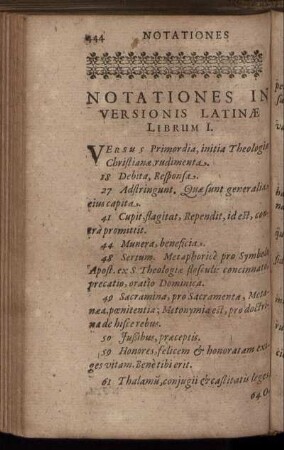 444 NOTATIONES
NOTATIONES IN
VERSIONIS LATINÆ
LIBRUM I.
VERSU 5 Primordia, initia Theologiæ
Christianæ, rudimenta.
18 Debita, Responsa.
27 Adstringunt. Quæ sunt generalia
eius capita.
41 Cupit, flagitat, Rependit, id est, con-
trà promittit.
44 Munera, beneficia.
48 Sertum. Metaphoricè pro Symbolo
Apost. ex S. Theologiæ flosculis concinnato,
precatio, oratio Dominica.
49 Sacramina, pro Sacramenta, Meta-
næa, pœnitentia; Metonymia est, pro doctri-
na de hisce rebus.
50 Jussibus, præceptis.
59 Honores, felicem & honoratam exi-
ges vitam. Benè tibi erit.
61 Thalamũ, conjugii & castitatis leges.
64 O-